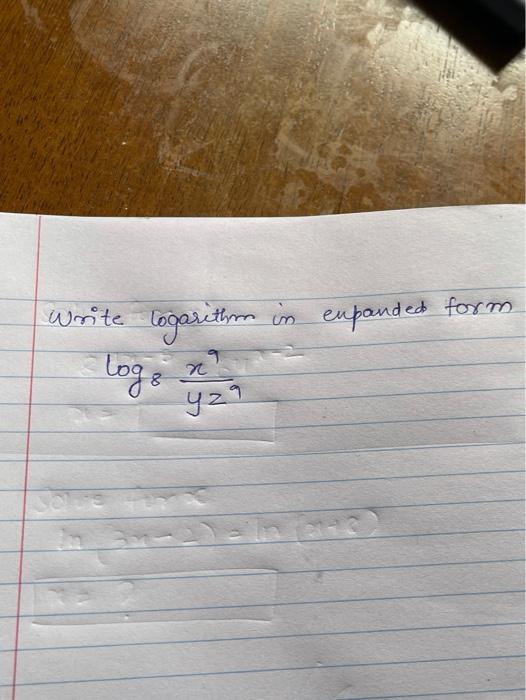 Write logarithm in expanded form
log₈ x⁹/yz⁹